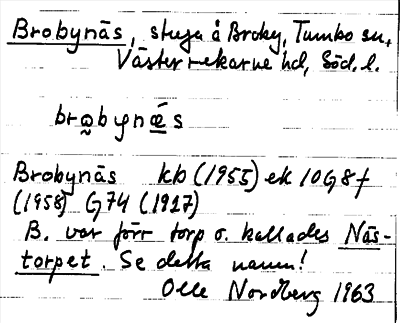 Brobynäs, stuga å Broby, Tumbo sn,
Västerrekarne hd, Söd. l.
bro̰bynǽs
Brobynäs kb (1955) ek 10G8f
(1958) G74 (1917)
B. var förr torp o. kallades Näs-
torpet. Se detta namn!
Olle Nordberg 1963